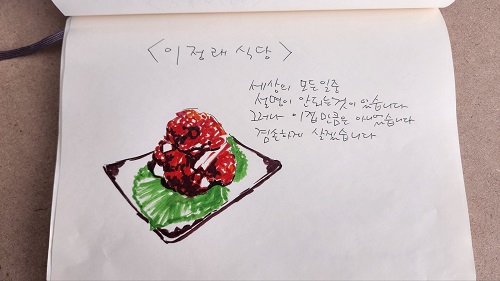 <이정래식당>
세상의 모든일중
설명이 안되는것이 있습니다
그러나 이집만큼은 아니었습니다
겸손하게 살겠습니다